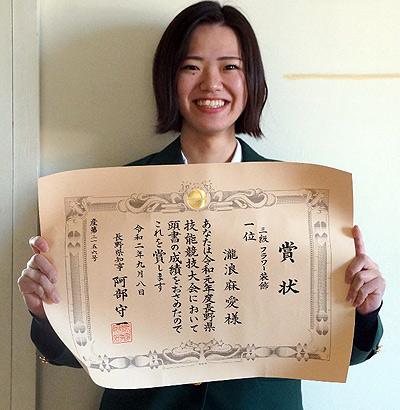 賞状
三級 フラワー装飾
一位
瀧浪麻愛様
あなたは令和元年度長野県
技能競技大会において
頭書の成績をおさめたので
これを賞します
令和二年九月八日
長野県知事 阿部守一
産第三一五六号